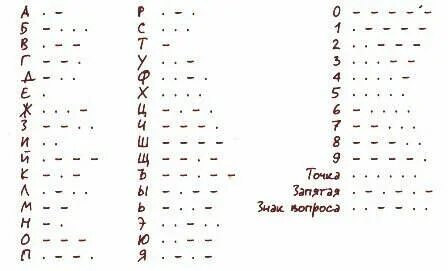 А . -
Б - . . .
В . - -
Г - - .
Д - . .
Е .
Ж . . . -
З - - . .
И . .
Й . - - -
К - . -
Л . - . .
М - -
Н - .
О - - -
П . - - .
Р . - .
С . . .
Т -
У . . -
Ф . . - .
Х . . . .
Ц - . - .
Ч - - - .
Ш - - - -
Щ - - . -
Ъ - - . - -
Ы - . - -
Ь - . . -
Э . . - . .
Ю . . - -
Я . - . -
0 - - - - -
1 . - - - -
2 . . - - -
3 . . . - -
4 . . . . -
5 . . . . .
6 - . . . .
7 - - . . .
8 - - - . .
9 - - - - .
Точка . . . . . .
Запятая . - . - . -
Знак вопроса . . - - . .